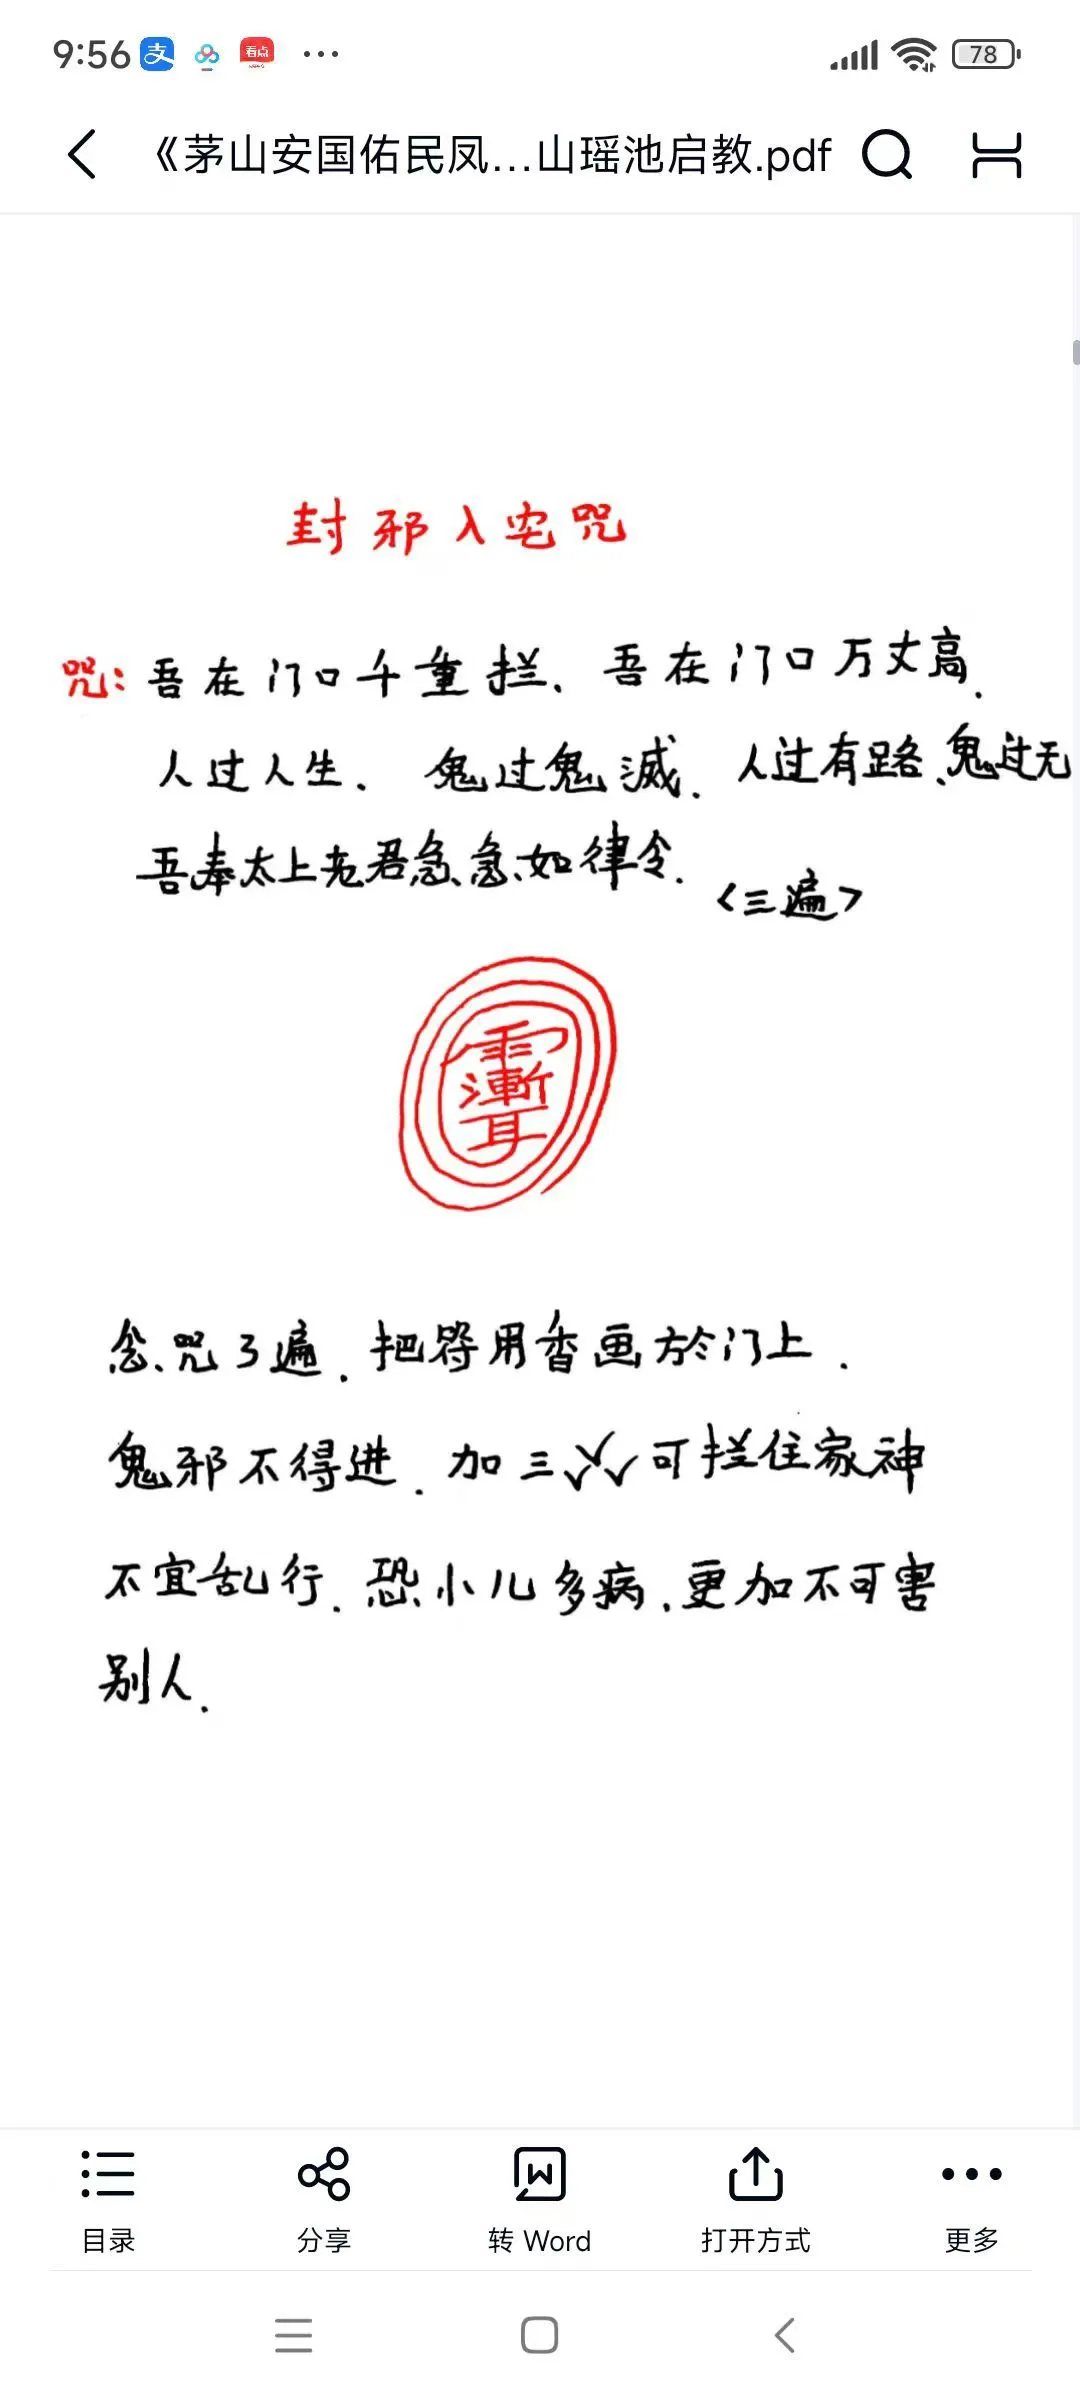 9:56
支
看点
...
78
《茅山安国佑民凤...山瑶池启教.pdf
封邪入宅咒
咒:吾在门口千重拦、吾在门口万丈高.
人过人生.鬼过鬼滅.人过有路、鬼过无
吾奉太上老君急急如律令.
<三遍>
雨
漸
耳
念咒3遍.把符用香画於门上.
鬼邪不得进.加三✓✓✓可拦住家神
不宜乱行.恐小儿多病.更加不可害
别人.
目录
分享
转 Word
打开方式
更多